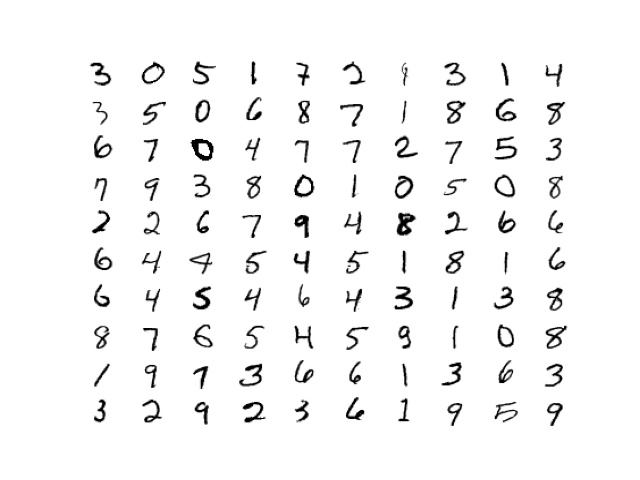 3 0 5 1 7 2 9 3 1 4
3 5 0 6 8 7 1 8 6 8
6 7 0 4 7 7 2 7 5 3
7 9 3 8 0 1 0 5 0 8
2 2 6 7 9 4 8 2 6 6
6 4 4 5 4 5 1 8 1 6
6 4 5 4 6 4 3 1 3 8
8 7 6 5 4 5 9 1 0 8
1 9 7 3 6 6 1 3 6 3
3 2 9 2 3 6 1 9 5 9